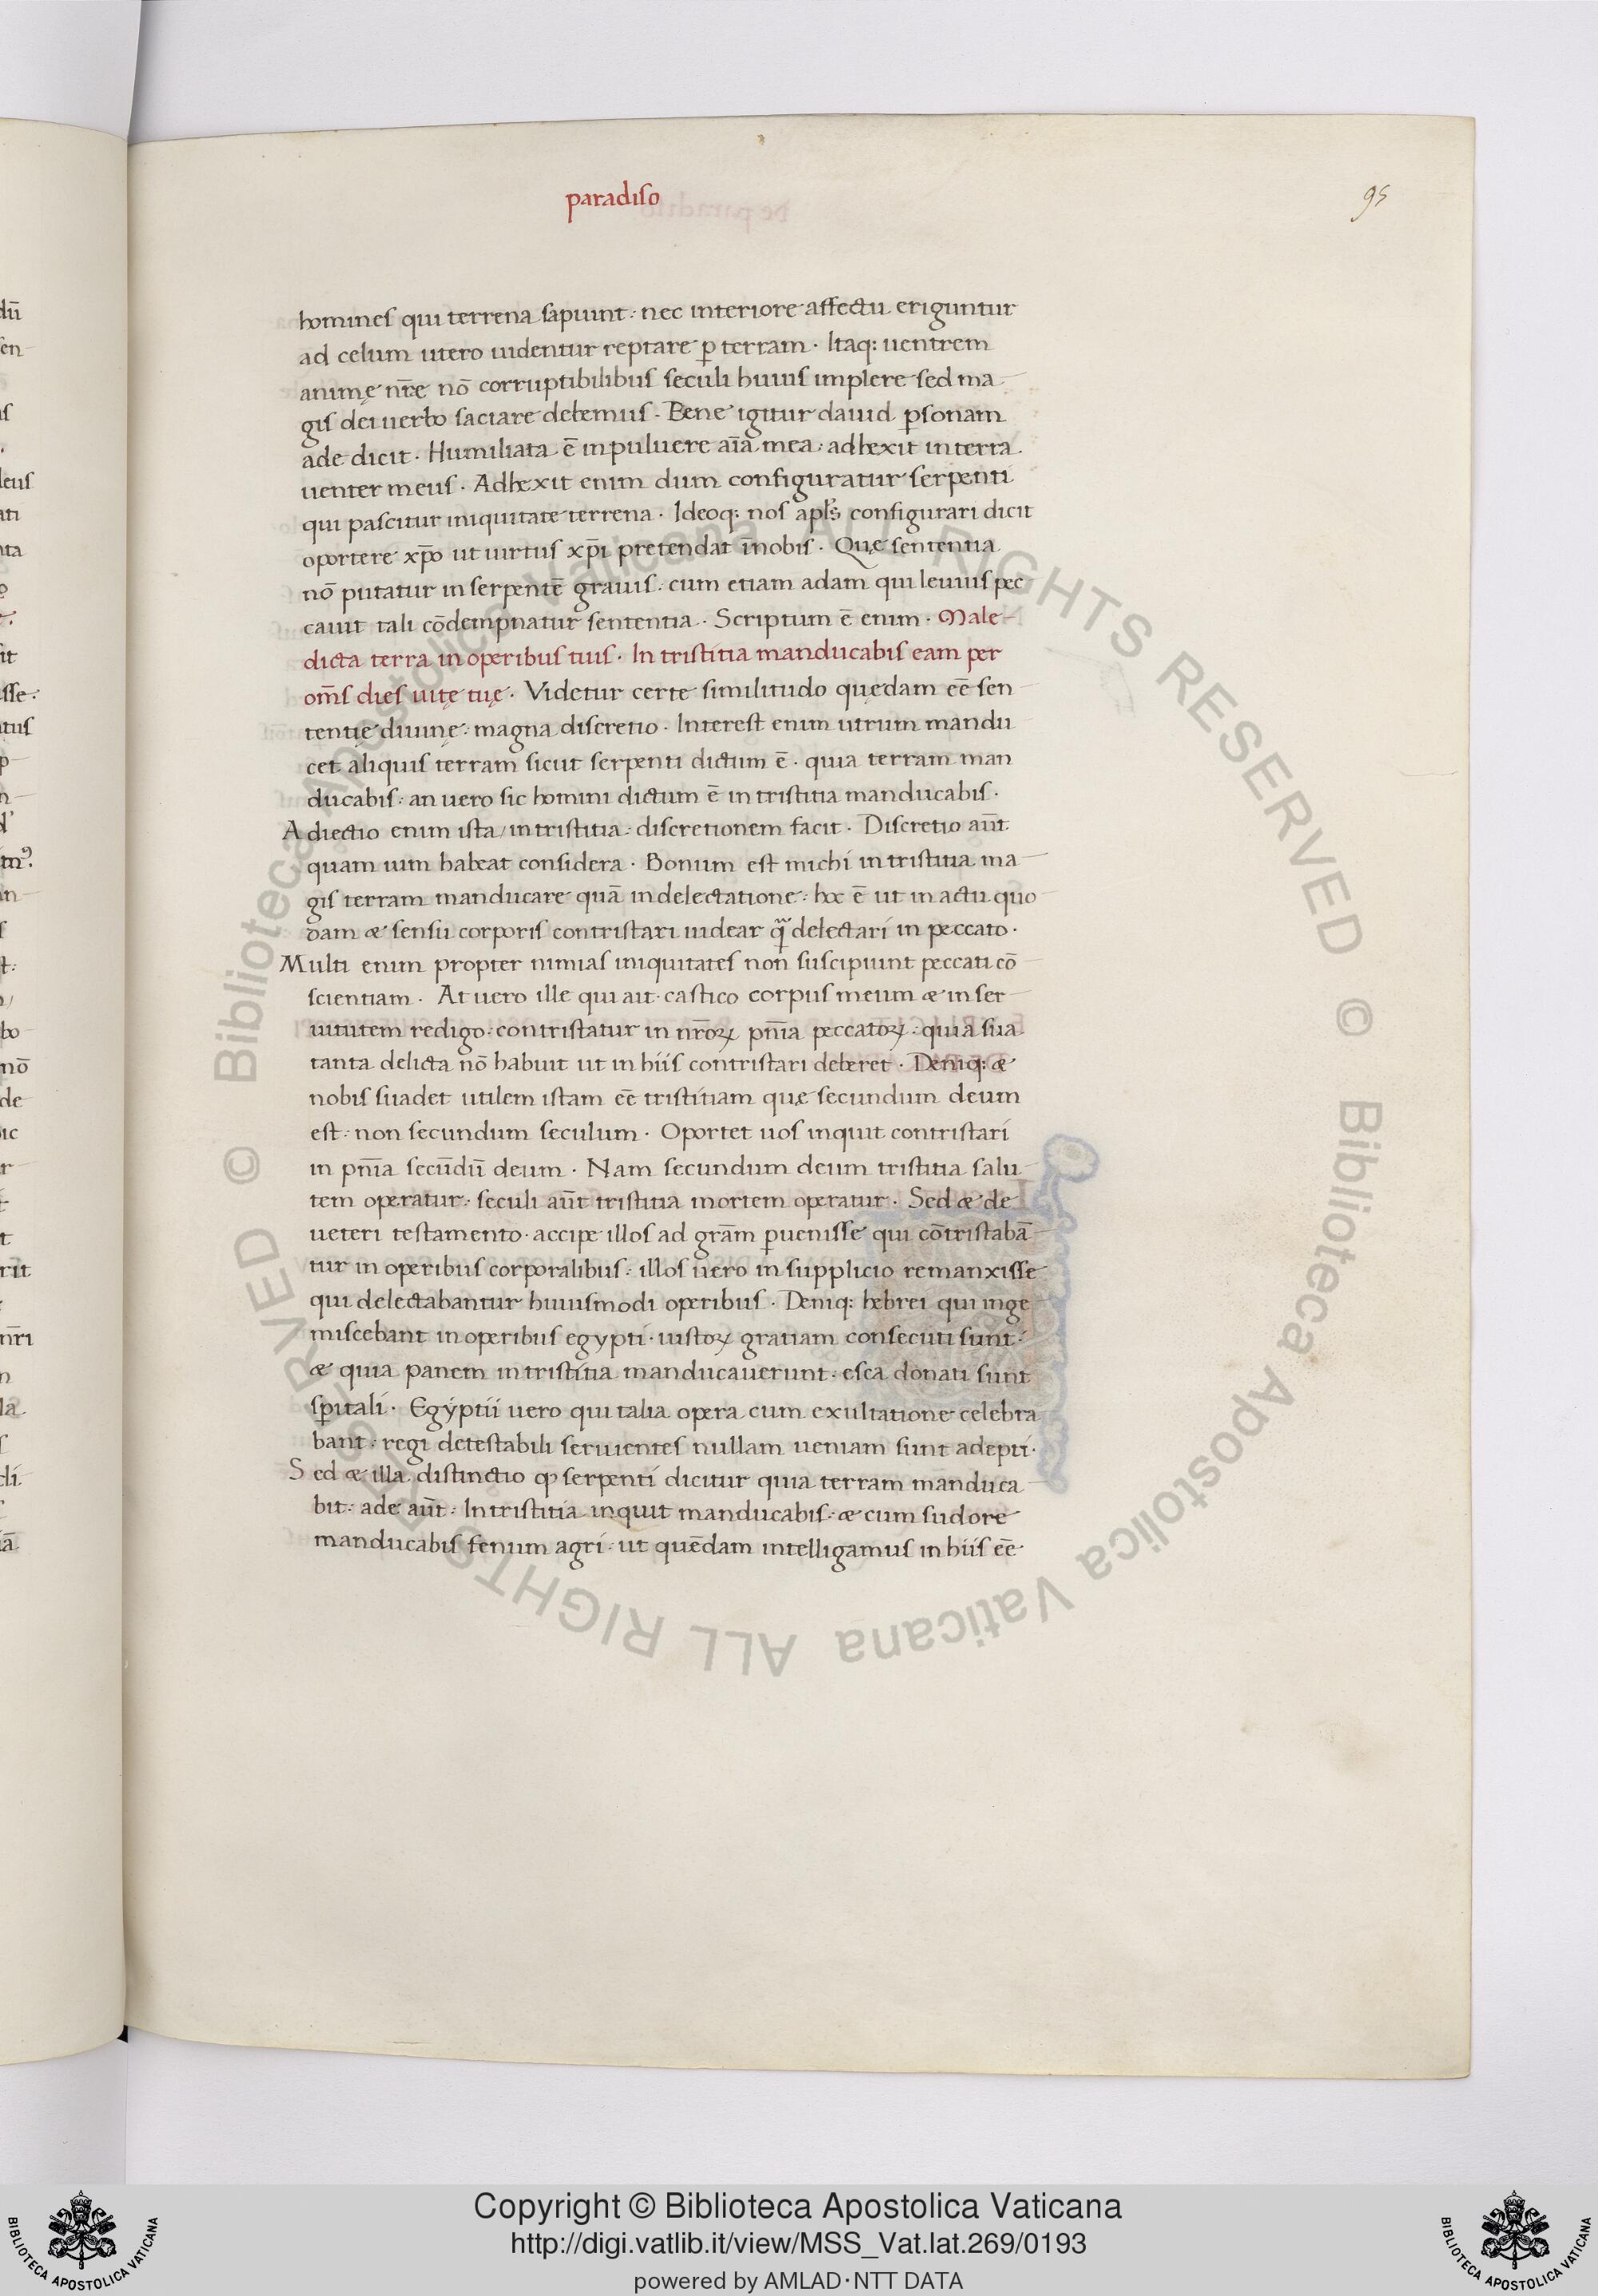 paradiso
95
homines qui terrena sapiunt: nec interiore affectu eriguntur
ad celum utero uidentur reptare ꝑ terram. Itaq: uentrem
animę nr̄ę nō corruptibilibus seculi huius implere sed ma
gis dei uerbo saciare debemus. Bene igitur dauid ꝑsonam
ade dicit. Humiliata ē in puluere aīa mea: adhexit in terra
uenter meus. Adhexit enim dum configuratur serpenti
qui pascitur iniquitate terrena. Ideoq: nos apl̄s configurari dicit
oportere xp̄o ut uirtus xp̄i pretendat īnobis. Quę sententia
nō putatur in serpentē grauis: cum etiam adam qui leuius pec
cauit tali cōdempnatur sententia. Scriptum ē enim. Male
dicta terra in operibus tuis. In tristitia manducabis eam per
om̄s dies uitę tuę. Videtur certe similitudo quędam eē sen
tentię diuinę: magna discretio. Interest enim utrum mandu
cet aliquis terram sicut serpenti dictum ē. quia terram man
ducabis: an uero sic homini dictum ē in tristitia manducabis.
Adiectio enim ista/in tristitia: discretionem facit. Discretio aūt
quam uim habeat considera. Bonum est michi in tristitia ma
gis terram manducare quā in delectatione: hoc ē ut in actu quo
dam æ sensu corporis contristari uidear q̄ delectari in peccato.
Multi enim propter nimias iniquitates non suscipiunt peccati cō
scientiam. At uero ille qui ait. castico corpus meum æ in ser
uitutem redigo: contristatur in nr̄oꝝ pn̄ia peccatoꝝ: quia sua
tanta delicta nō habuit ut in hiis contristari deberet. Deniq: æ
nobis suadet utilem istam eē tristitiam quæ secundum deum
est: non secundum seculum. Oportet uos inquit contristari
in pn̄ia secūdū deum. Nam secundum deum tristitia salu
tem operatur: seculi aūt tristitia mortem operatur. Sed æ de
ueteri testamento. accipe illos ad grām ꝑuenisse qui cōtristabā
tur in operibus corporalibus: illos uero in supplicio remanxisse
qui delectabantur huiusmodi operibus. Deniq: hebrei qui inge
miscebant in operibus egypti. iustoꝝ gratiam consecuti sunt:
æ quia panem in tristitia manducauerunt: esca donati sunt
sp̄itali. Egyptii uero qui talia opera cum exultatione celebra
bant: regi detestabili seruientes nullam ueniam sunt adepti.
Sed æ illa distinctio ꝙ serpenti dicitur quia terram manduca
bit: ade aūt: In tristitia inquit manducabis: æ cum sudore
manducabis fenum agri: ut quēdam intelligamus in hiis eē
Copyright © Biblioteca Apostolica Vaticana
http://digi.vatlib.it/view/MSS_Vat.lat.269/0193
powered by AMLAD·NTT DATA